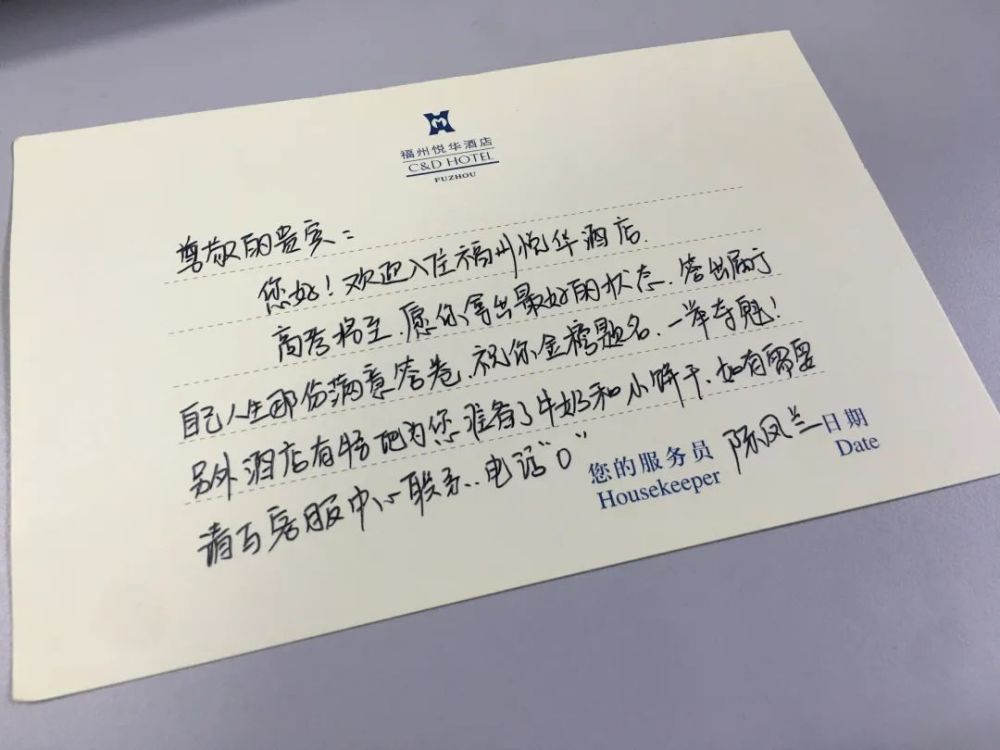 福州悦华酒店
C&D HOTEL
FUZHOU
尊敬的贵宾:
您好!欢迎入住福州悦华酒店.
高考将至.愿你拿出最好的状态.答出属于
自己人生那份满意答卷.祝你金榜题名.一举夺魁!
另外酒店有特地为您准备了牛奶和小饼干.如有需要
请与客服中心联系..电话“0”
您的服务员 陈凤兰 日期
Housekeeper Date